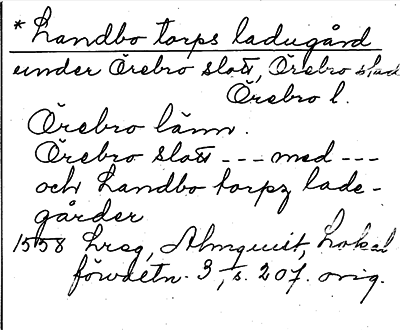 * Landbo torps ladugård
under Örebro slott, Örebro stad
Örebro l.
Örebro länn.
Örebro slott --- med ---
och Landbo torpz lade-
gårder
1558 hrsg, Almquist, Lokal
förvaltn. 3, s. 207. orig.